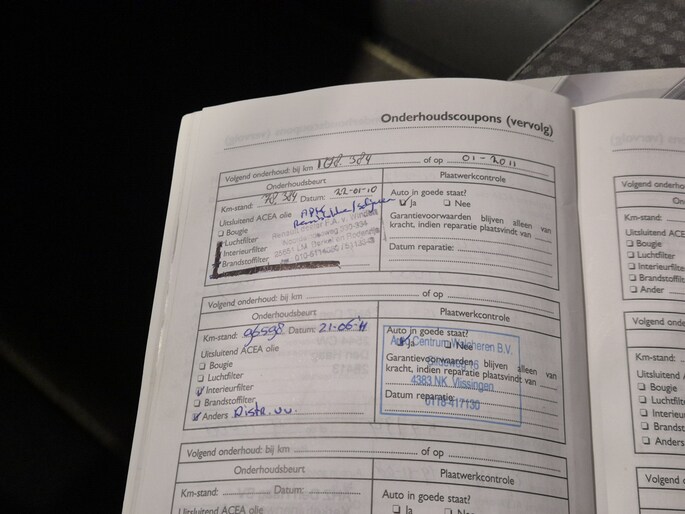 Onderhoudscoupons (vervolg)
Volgend onderhoud: bij km 108.384 of op 01-2011
Onderhoudsbeurt Plaatwerkcontrole
Km-stand: 78.384 Datum: 22-01-10 Auto in goede staat?
Uitsluitend ACEA olie APK Ja Nee
Bougie Garantievoorwaarden blijven alleen van
Luchtfilter kracht, indien reparatie plaatsvindt van
Interieurfilter
Brandstoffilter Datum reparatie:
Volgend onderhoud: bij km of op
Onderhoudsbeurt Plaatwerkcontrole
Km-stand: 96598 Datum: 21-06-11 Auto in goede staat?
Uitsluitend ACEA olie Ja Nee
Bougie Garantievoorwaarden blijven alleen van
Luchtfilter kracht, indien reparatie plaatsvindt van
Interieurfilter
Brandstoffilter Datum reparatie:
Anders Distr. vv.
Centrum Walcheren B.V.
4383 NK Vlissingen
0118-417130
Volgend onderhoud: bij km of op
Onderhoudsbeurt Plaatwerkcontrole
Km-stand: Datum: Auto in goede staat?
Uitsluitend ACEA olie Ja Nee
Volgend onderho
Km-stand:
Uitsluitend ACE
Bougie
Luchtfilter
Interieurfilter
Brandstoffilter
Ander
Volgend ond
Km-stand:
Uitsluitend A
Bougie
Luchtfilt
Interieur
Brandst
Anders
Volgend